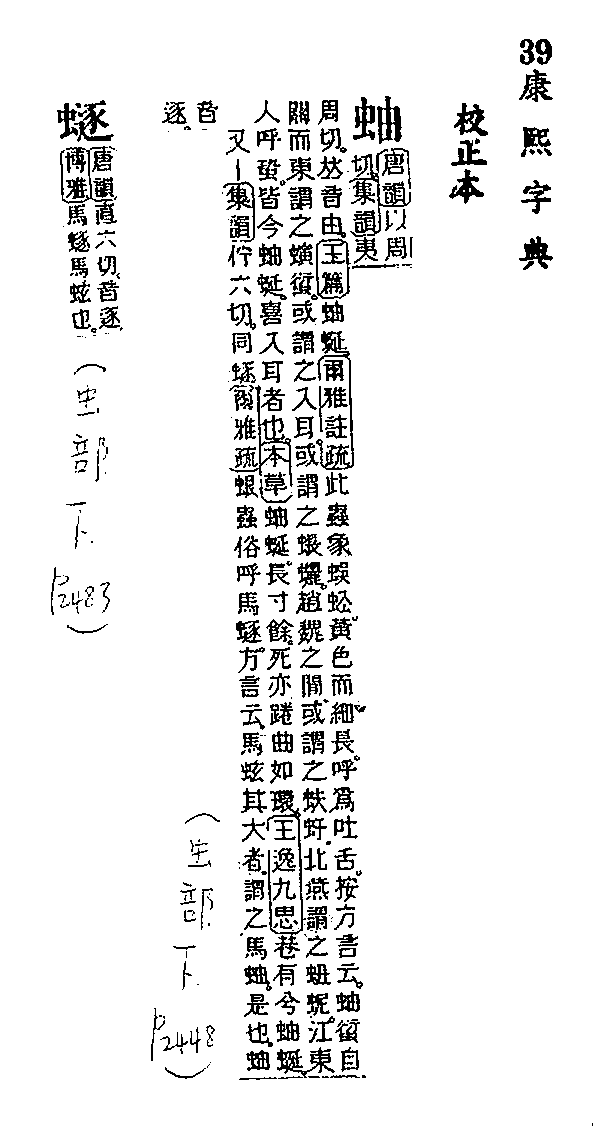 39康熙字典
校正本
蚰 唐韻以周
切集韻夷
周切𠀤音由玉篇蚰蜒爾雅註疏此蟲象蜈蚣黃色而細長呼爲吐舌按方言云蚰䘆自
關而東謂之螾䘆或謂之入耳或謂之蜄䗲趙魏之閒或謂之蚨虶北燕謂之蛆蚭江東
人呼蛩皆今蚰蜒喜入耳者也本草蚰蜒長寸餘死亦踡曲如環王逸九思巷有兮蚰蜒
又丨集韻佇六切同䗱爾雅疏蛝蟲俗呼馬䗱方言云馬蚿其大者謂之馬蚰是也蚰
音
逐
(虫部下 P2448)
䗱 唐韻直六切音逐
博雅馬䗱馬蚿也
(虫部下 P2483)